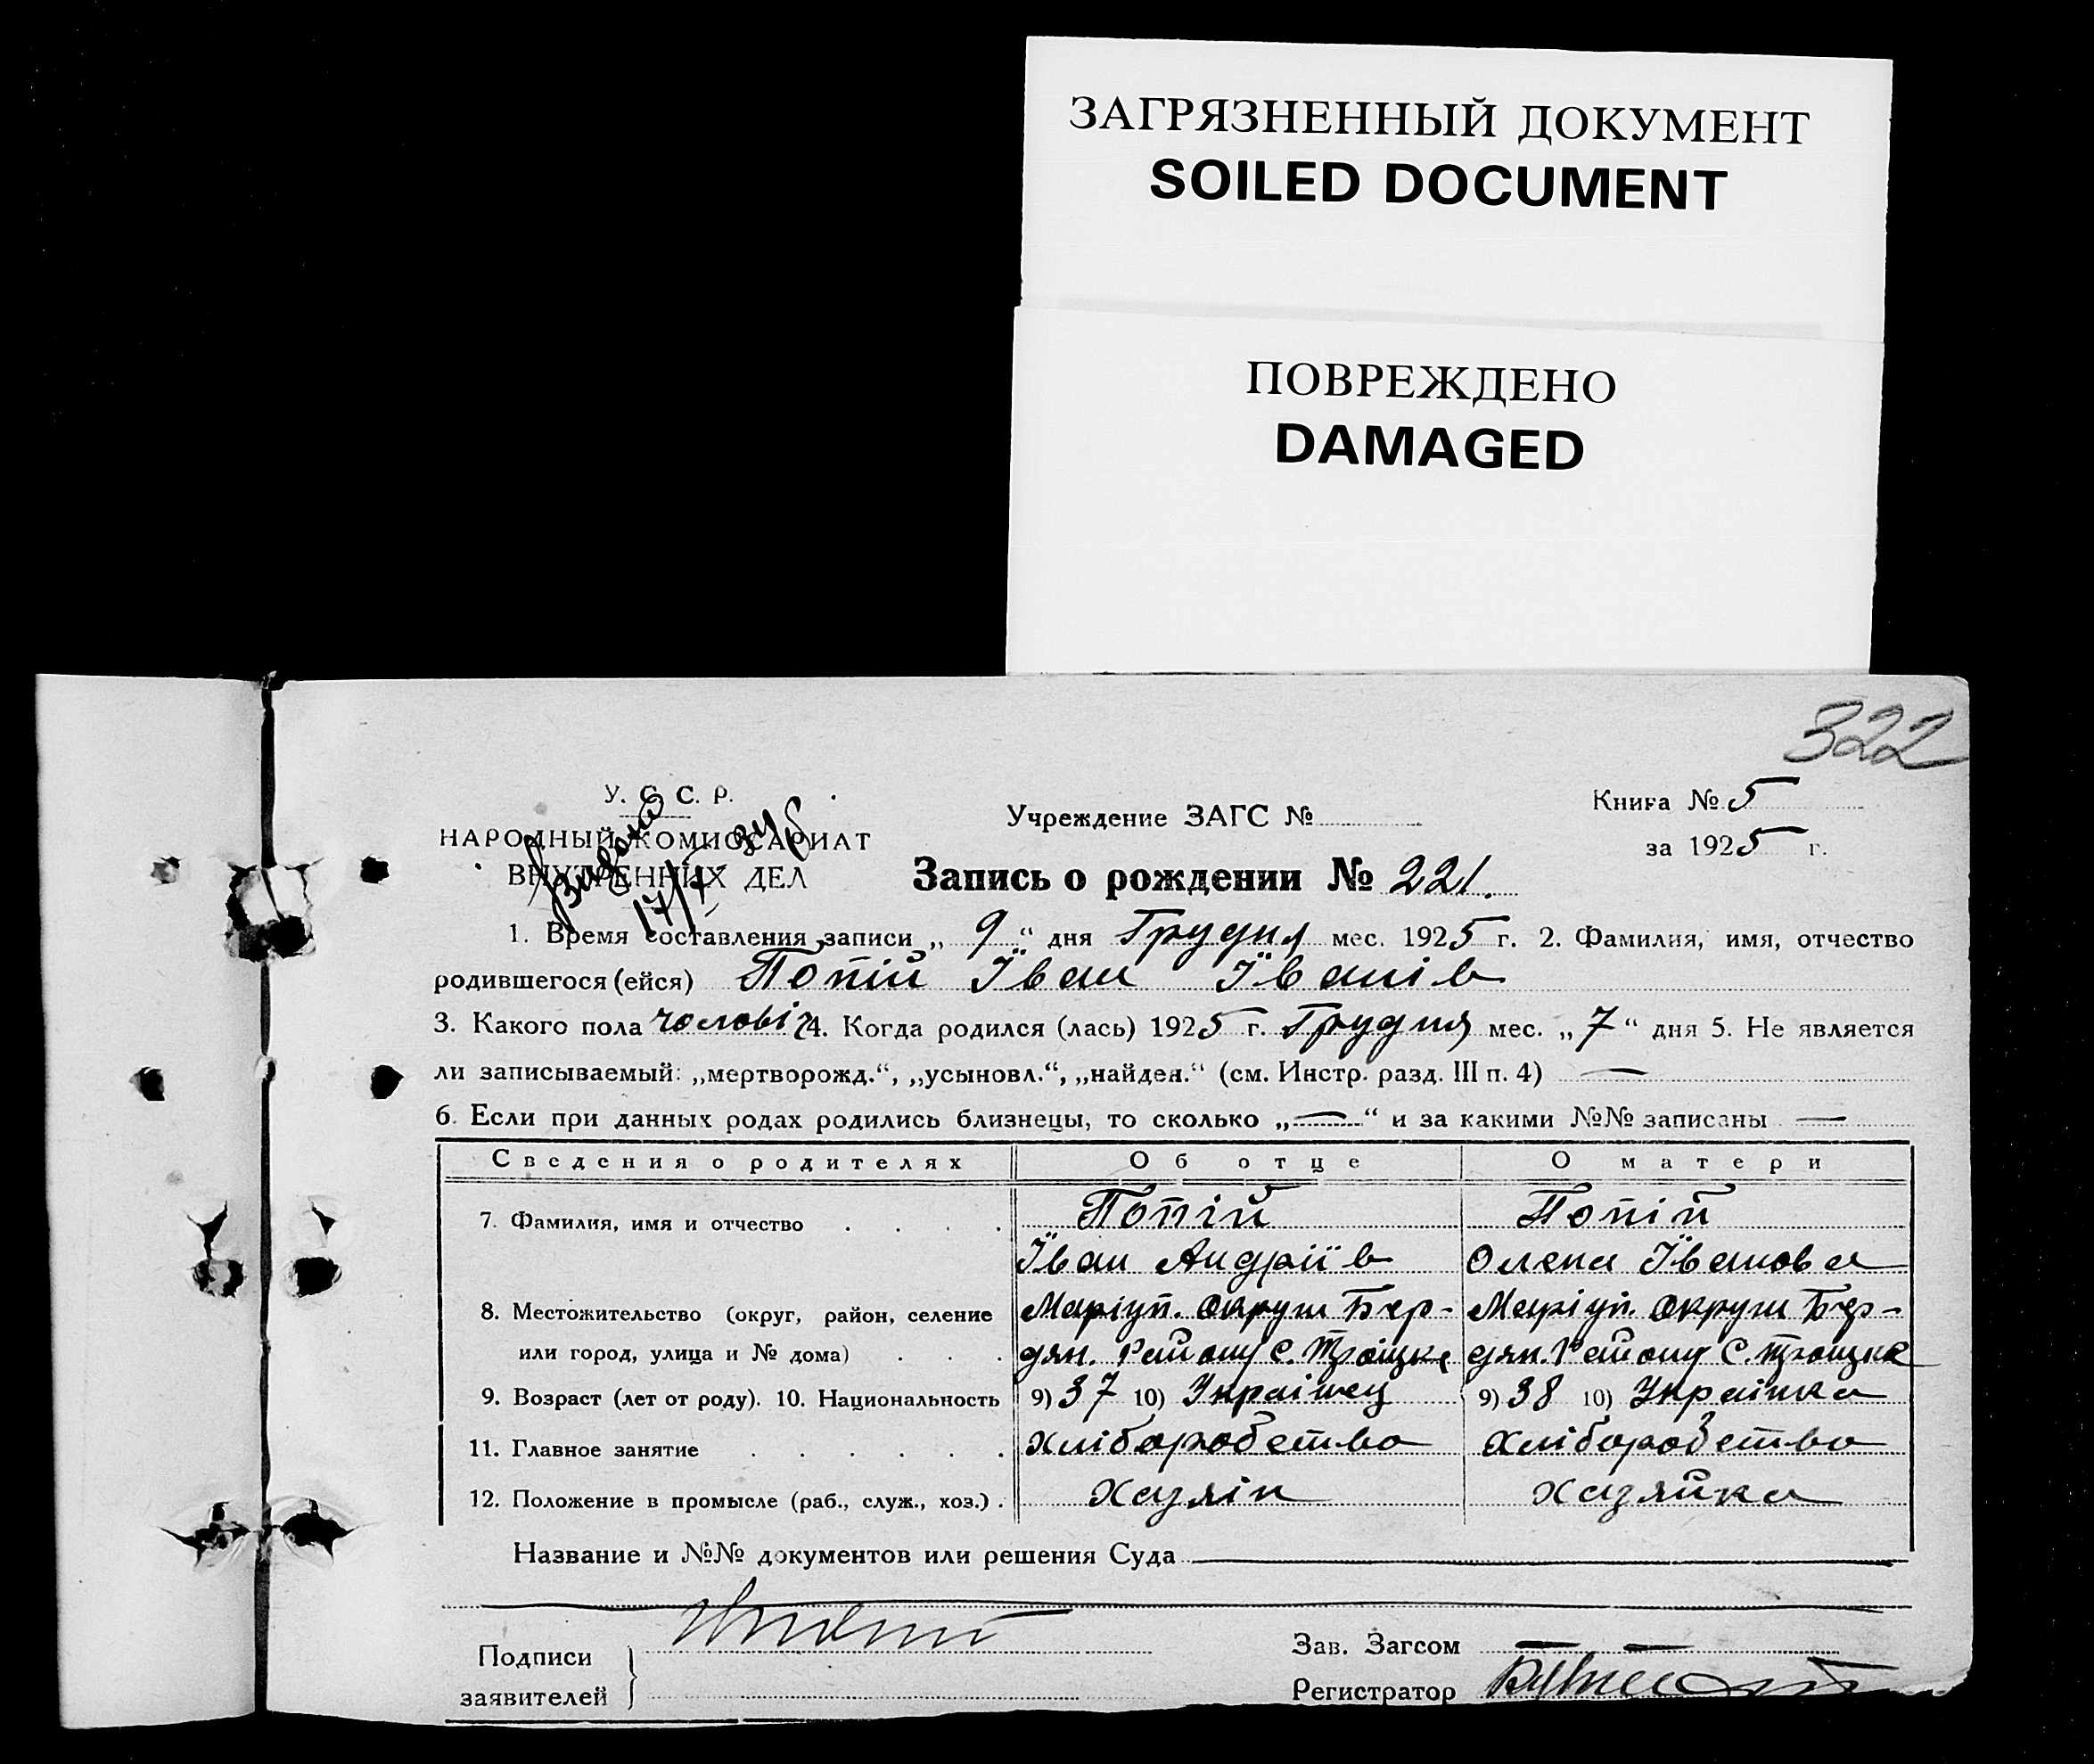 ЗАГРЯЗНЕННЫЙ ДОКУМЕНТ
SOILED DOCUMENT
ПОВРЕЖДЕНО
DAMAGED
322
У. С. С. Р.
НАРОДНЫЙ КОМИССАРИАТ
ВНУТРЕННИХ ДЕЛ
Учреждение ЗАГС №
Книга № 5
за 1925 г.
Запись о рождении № 221.
1. Время составления записи „ 9 “ дня Грудня мес. 1925 г. 2. Фамилия, имя, отчество
родившегося (ейся) Попій Їван Їванів
3. Какого пола чоловіч 4. Когда родился (лась) 1925 г. Грудня мес. „ 7 “ дня 5. Не является
ли записываемый: „мертворожд.“, „усыновл.“, „найден.“ (см. Инстр. разд. III п. 4) —
6. Если при данных родах родились близнецы, то сколько „—“ и за какими №№ записаны —
Сведения о родителях Об отце О матери
7. Фамилия, имя и отчество . . . . Попій Попій
Їван Андріїв Олена Їванова
8. Местожительство (округ, район, селение Маріуп. округи Бер- Маріуп. округи Бер-
или город, улица и № дома) . . . дян. Району С. Троіцьке дян. Району С. Троіцьке
9. Возраст (лет от роду). 10. Национальность 9) 37 10) Украінец 9) 38 10) Украінка
11. Главное занятие . . . . . . хліборобство хліборобство
12. Положение в промысле (раб., служ., хоз.) . хазяін хазяйка
Название и №№ документов или решения Суда
Подписи
заявителей
Зав. Загсом — —
Регистратор